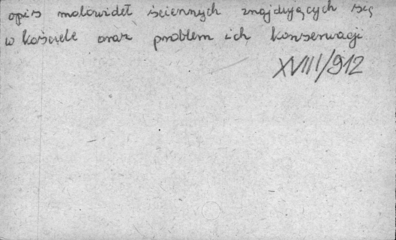 opis malowideł ściennych znajdujących się
w kościele oraz problem ich konserwacji
XVIII/912